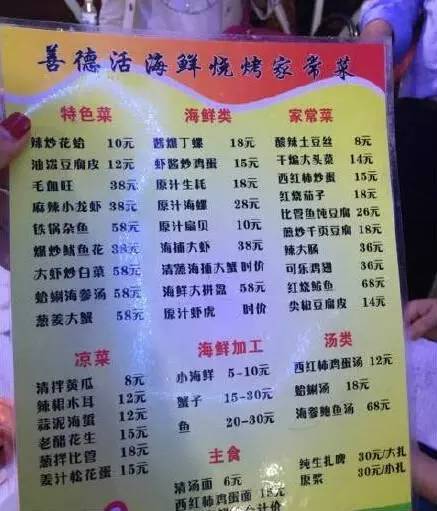 善德活海鲜烧烤家常菜
特色菜
辣炒花蛤 10元
油泼豆腐皮 12元
毛血旺 38元
麻辣小龙虾 38元
铁锅杂鱼 58元
爆炒鱿鱼花 38元
大虾炒白菜 58元
蛤蜊海参汤 58元
葱姜大蟹 58元
海鲜类
酱爆丁螺 18元
虾酱炒鸡蛋 15元
原汁生蚝 18元
原汁海螺 28元
原汁扇贝 10元
海捕大虾 38元
清蒸海捕大蟹 时价
海鲜大拼盘 58元
原汁虾虎 时价
家常菜
酸辣土豆丝 8元
干煸大头菜 14元
西红柿炒蛋 15元
红烧茄子 18元
比管鱼炖豆腐 26元
煎炒千页豆腐 18元
辣大肠 36元
可乐鸡翅 36元
红烧鲅鱼 68元
尖椒豆腐皮 14元
凉菜
清拌黄瓜 8元
辣根木耳 12元
蒜泥海蜇 12元
老醋花生 15元
葱拌比管 18元
姜汁松花蛋 15元
海鲜加工
小海鲜 5-10元
蟹子 15-30元
鱼 20-30元
主食
清汤面 6元
西红柿鸡蛋面 18元
汤类
西红柿鸡蛋汤 12元
蛤蜊汤 18元
海参鲍鱼汤 68元
纯生扎啤 30元/大扎
原浆 30元/小扎